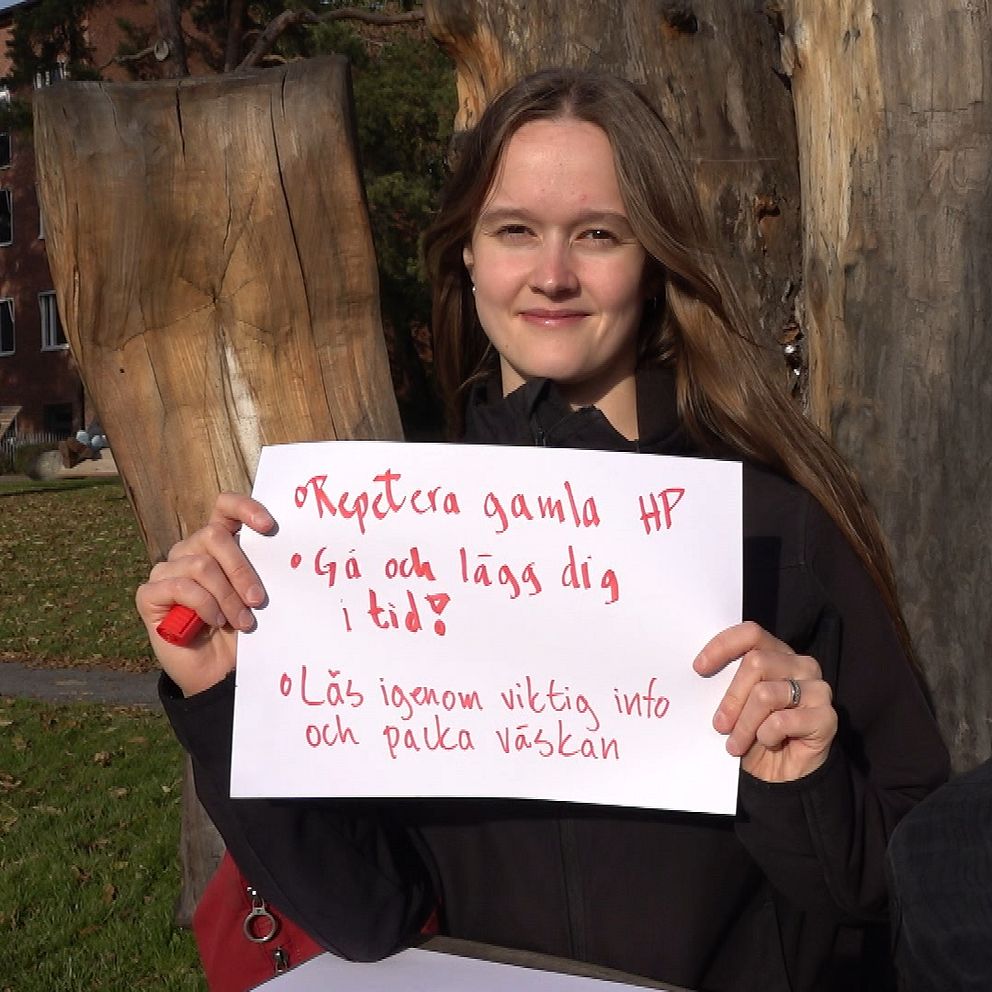 •Repetera gamla HP
•Gå och lägg dig
i tid!
•Läs igenom viktig info
och packa väskan